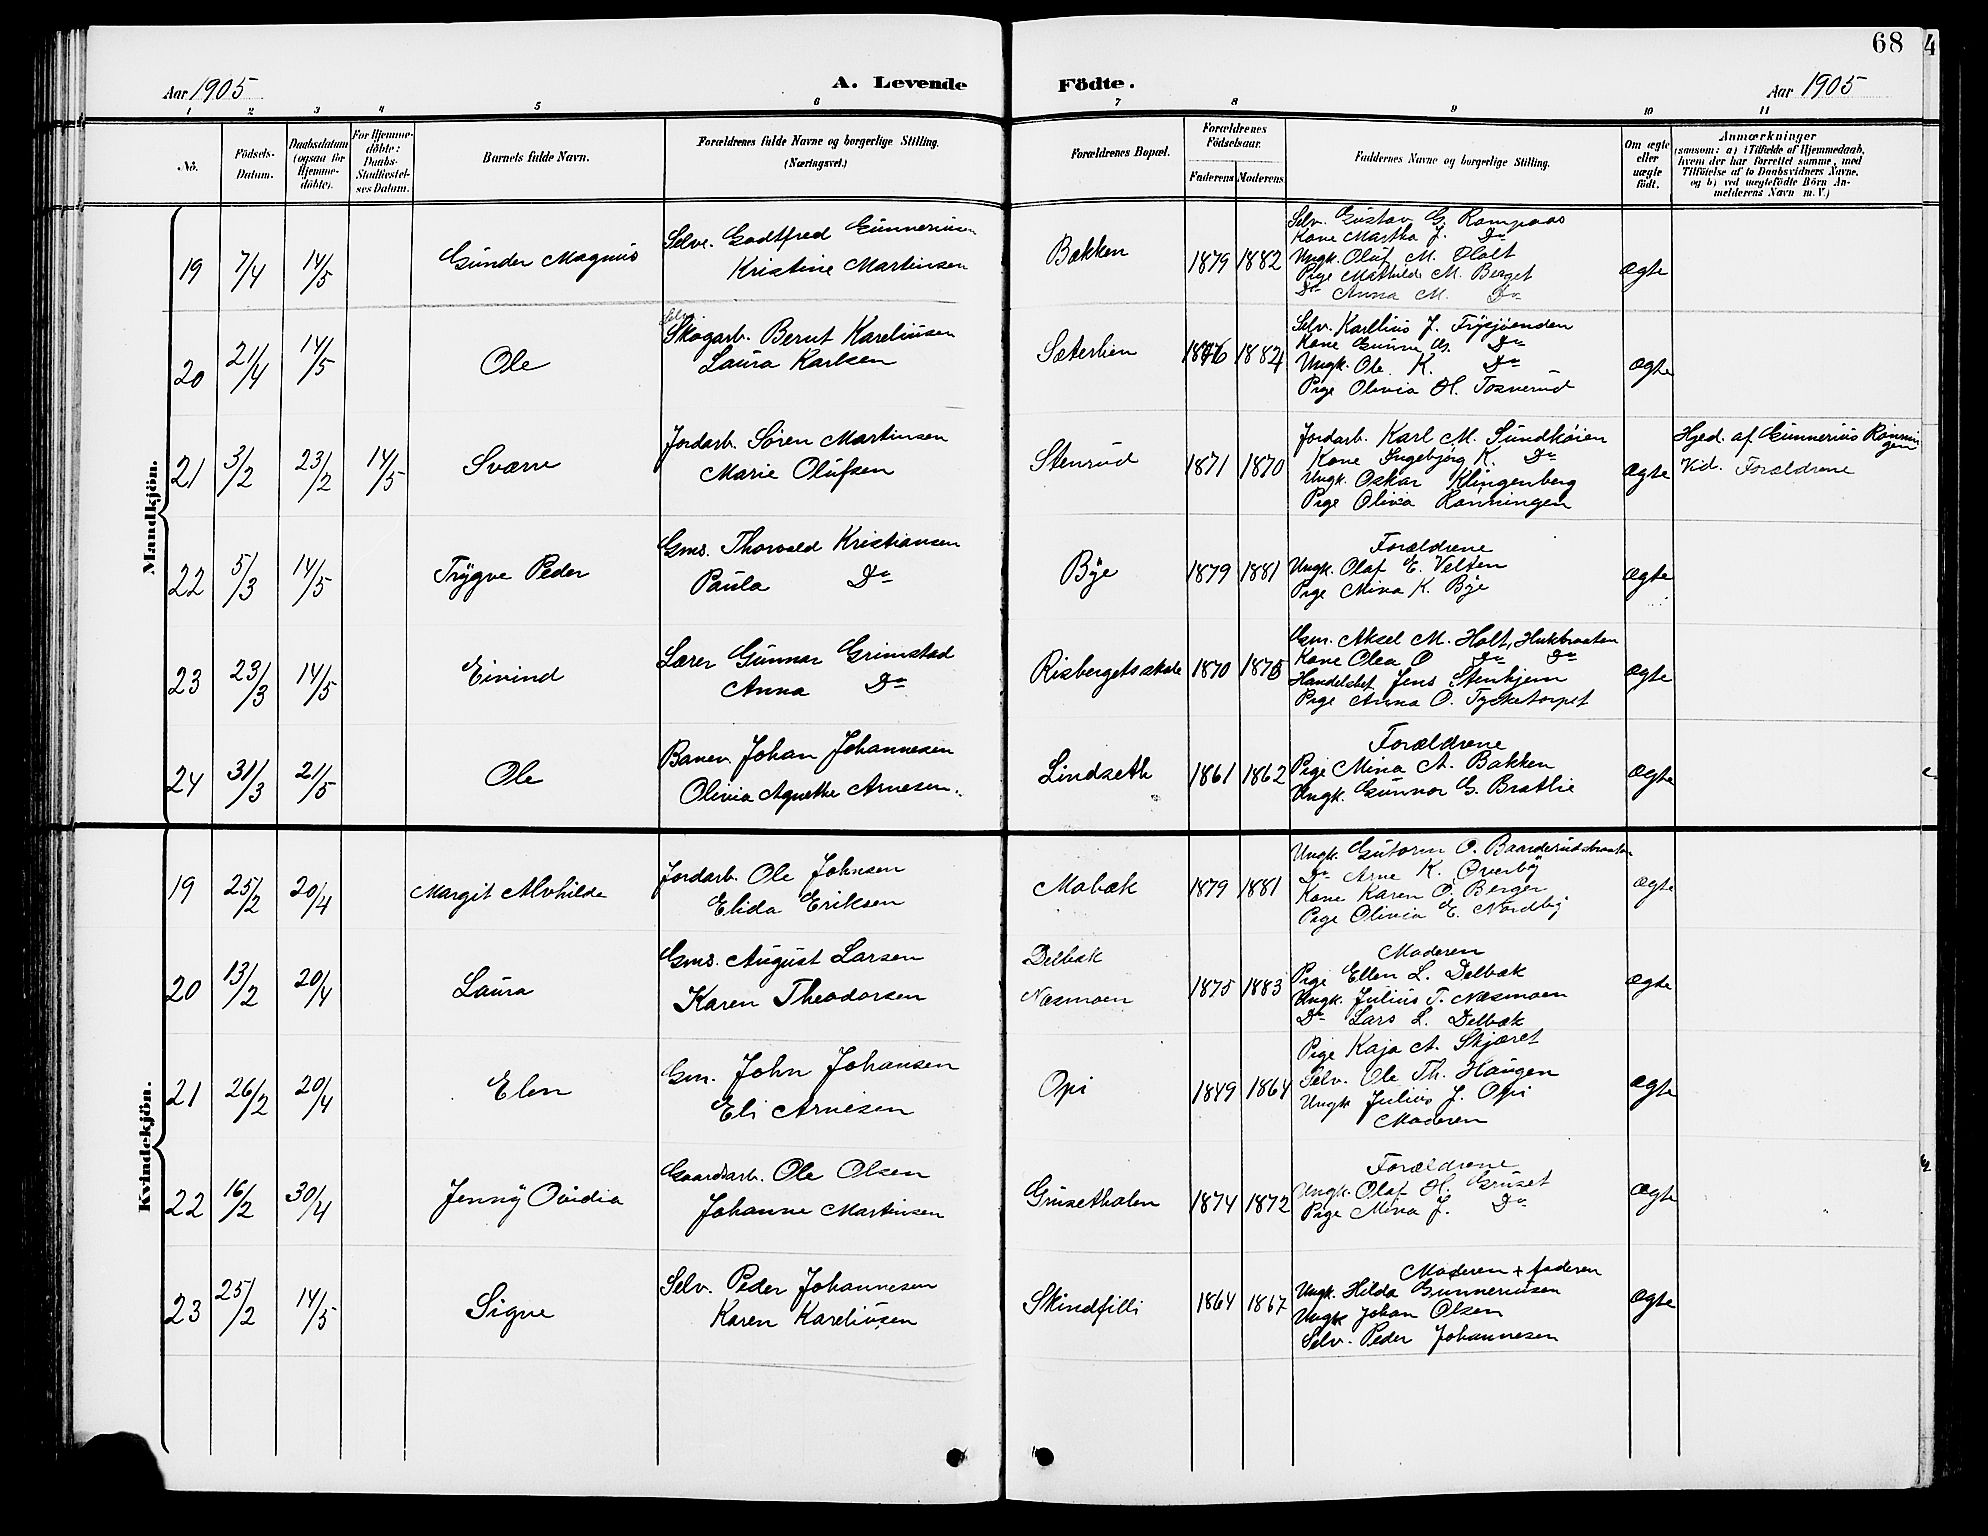 68
4
Aar 1905
A. Levende Födte.
Aar 1905
1 2 3 4 5 6 7 8 9 10 11
No.
Födsels-Datum.
Daabsdatum (ogsaa for Hjemme-döbte).
For Hjemme-döbte: Daabs-Stadfæstel-ses Datum.
Barnets fulde Navn.
Forældrenes fulde Navne og borgerlige Stilling.
(Næringsvei.)
Forældrenes Bopæl.
Forældrenes Födselsaar.
Faderens Moderens
Faddernes Navne og borgerlige Stilling.
Om ægte eller uægte födt.
Anmærkninger
(saasom: a) i Tilfælde af Hjemmedaab,
hvem der har forrettet samme, med
Tilföielse af to Daabsvidners Navne,
og b) ved uægtefödte Börn An-
melderens Navn m. V.)
Mandkjön.
19 7/4 14/5 Gunder Magnus
Selve. Godtfred Gunneriusen
Kristine Martinsen
Bakken 1879 1882
Selv. Gustav G. Rompaas
Kone Martha J. Do
Ungk. Oluf M. Olålt
Pige Mathilde M. Berget
Do Anna M. Do
Ægte
20 21/4 14/5 Ole
Selv.
Skogarb. Bernt Kareliusen
Laura Karlsen
Sæterlien 1876 1884
Selv. Karelius J. Frysjøenden
Kone Gunne Do
Ungk. Ole K. Do
Pige Olivia H. Tosverud
Ægte
21 3/2 23/2 14/5 Sværre
Jordarb. Sören Martinsen
Marie Olufsen
Stenrud 1871 1870
Jordarb. Karl M. Sundhöien
Kone Ingebjørg K. Do
Ungk. Oskar Klingenberg
Pige Olivia Rønningen
Ægte
Hjed. af Gunnerius Rønnin
gen
Vid. Forældrene
22 5/3 14/5 Trygve Peder
Gms. Thorvald Kristiansen
Paula Do
Bye 1879 1881
Forældrene
Ungk. Olaf E. Velten
Pige Mina K. Bye
Ægte
23 23/3 14/5 Eivind
Lærer Gunnar Grimstad
Anna Do
Risbergets skole 1870 1875
Gm. Aksel M. Holt, Hukbraaten
Kone Olea O Do Do
Handelsbet Jens Stenhjem
Pige Anna O. Tysketorpet
Ægte
24 31/3 21/5 Ole
Banev. Johan Johannesen
Olivia Agnethe Arnesen.
Lindseth 1861 1862
Forældrene
Pige Mina A. Bakken
Ungk. Gunnar G. Bratlie
Ægte
Kvindekjön.
19 25/2 20/4 Margit Alvhilde
Jordarb. Ole Johnsen
Elida Eriksen
Mobæk 1879 1881
Ungk. Gutorm O. Banderudsbraaten
Do Arne K. Øverby
Kone Karen O. Berger
Pige Olivia E. Nordby
Ægte
20 13/2 20/4 Laura
Gms. August Larsen
Karen Theodorsen
Delbæk
Næsmoen
1875 1883
Moderen
Pige Ellen L. Delbæk
Ungk. Julius T. Næsmoen
Do Lars L. Delbæk
Ægte
21 26/2 20/4 Elen
Gm. John Johansen
Eli Arnesen
Opi 1849 1864
Pige Kaja A. Skjæret
Selv. Ole Th. Haugen
Ungk Julius J. Opi
Moderen
Ægte
22 16/2 30/4 Jenny Ovidia
Gaardsarb. Ole Olsen
Johanne Martinsen
Grusethalen 1874 1872
Forældrene
Ungk. Olaf H. Gruset
Pige Mina J. Do
Ægte
23 25/2 14/5 Signe
Selv. Peder Johannesen
Karen Kareliusen
Skindfilli 1864 1867
Moderen + faderen
Ungk. Hilda Gunneriusen
Ungk Johan Olsen
Selv. Peder Johannesen
Ægte